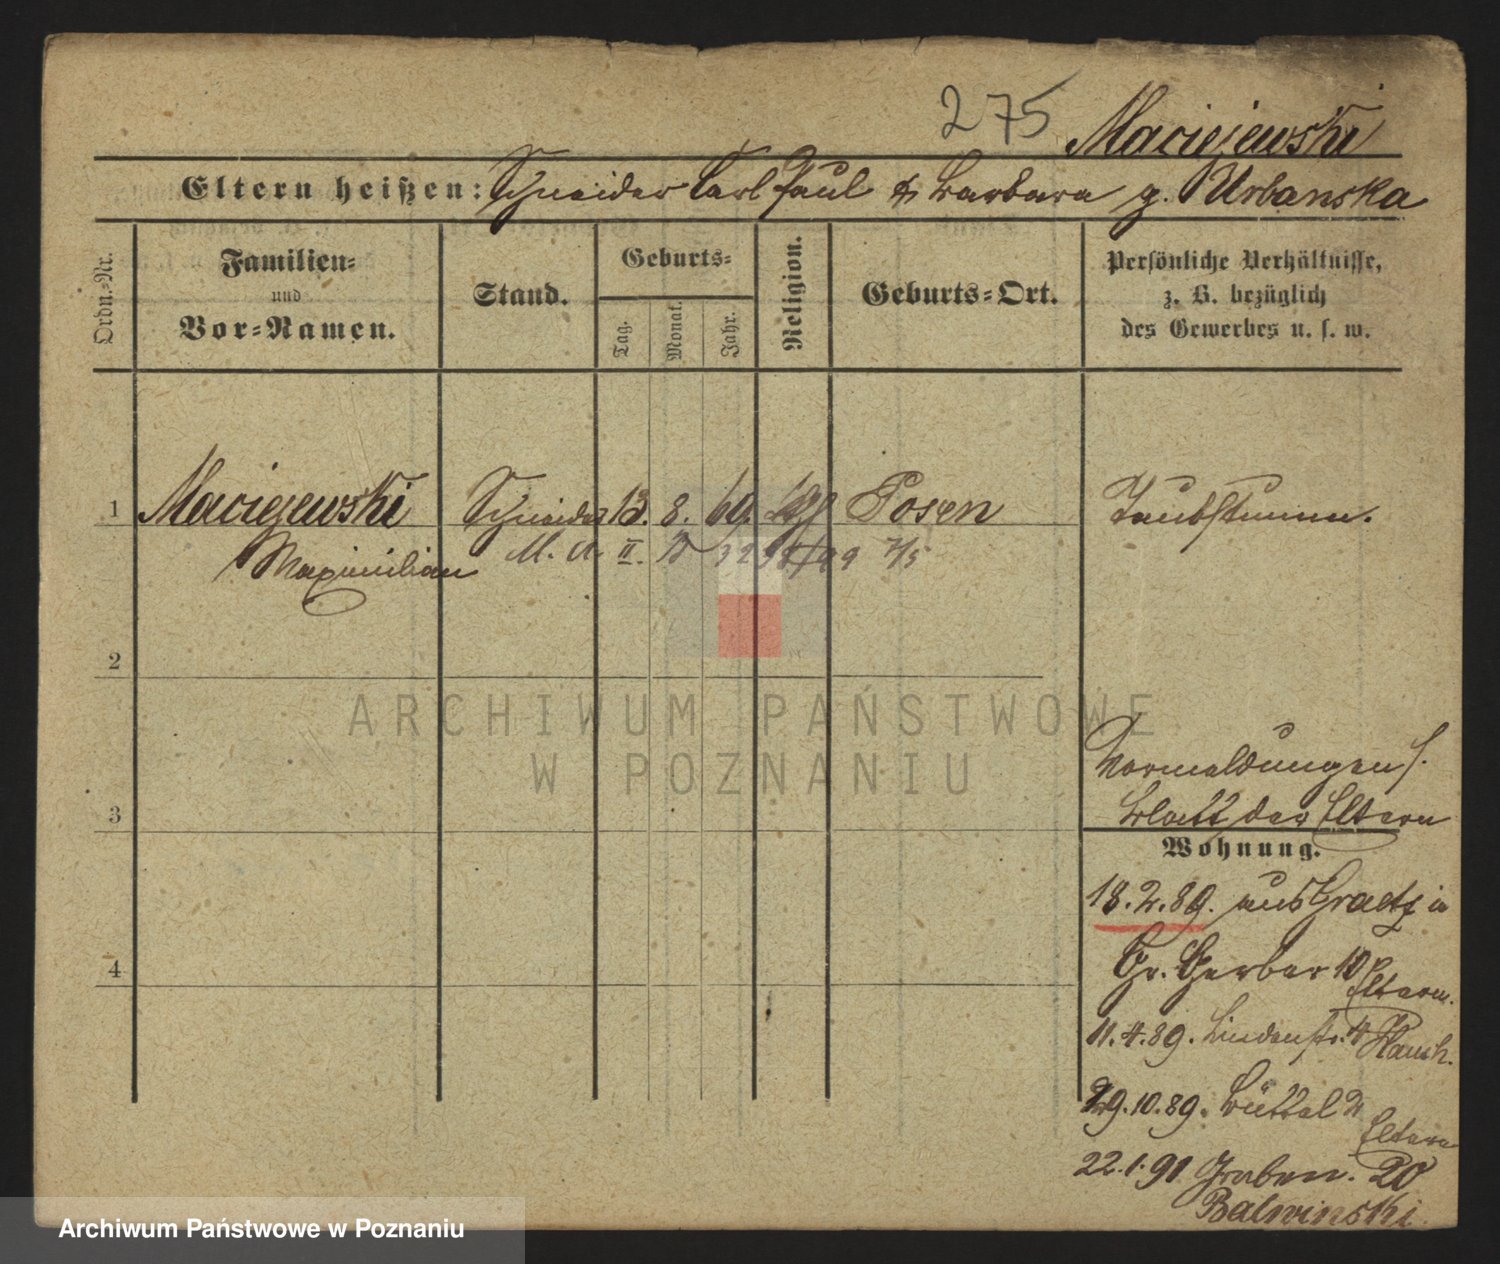 275 Maciejewski
Eltern heißen: Schneider Carl Paul & Barbara g. Urbanska
Ordn.-Nr.
Familien-
und
Vor-Namen.
Stand.
Geburts-
Tag.
Monat.
Jahr.
Religion.
Geburts-Ort.
Persönliche Verhältnisse,
z. B. bezüglich
des Gewerbes u. s. w.
1 Maciejewski Schneider 13. 8. 69. Posen Taubstumm.
Maximilian M. A. II.
2
3
4
Vormeldungen s.
Blatt der Eltern
Wohnung.
18.2.89. aus Graetz in
Gr. Gerber 10 Eltern.
11.4.89. Lindenstr. 4
29.10.89. Büttel
Eltern
22.1.91 Graben. 20
Balwinski
ARCHIWUM PAŃSTWOWE
W POZNANIU
Archiwum Państwowe w Poznaniu